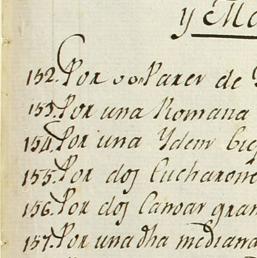 y Ma
152. Por 30 Pares de
153. Por una Romana
154. Por una Ydem
155. Por dos Cucharone
156. Por dos Canoas gran
157. Por una dha mediana